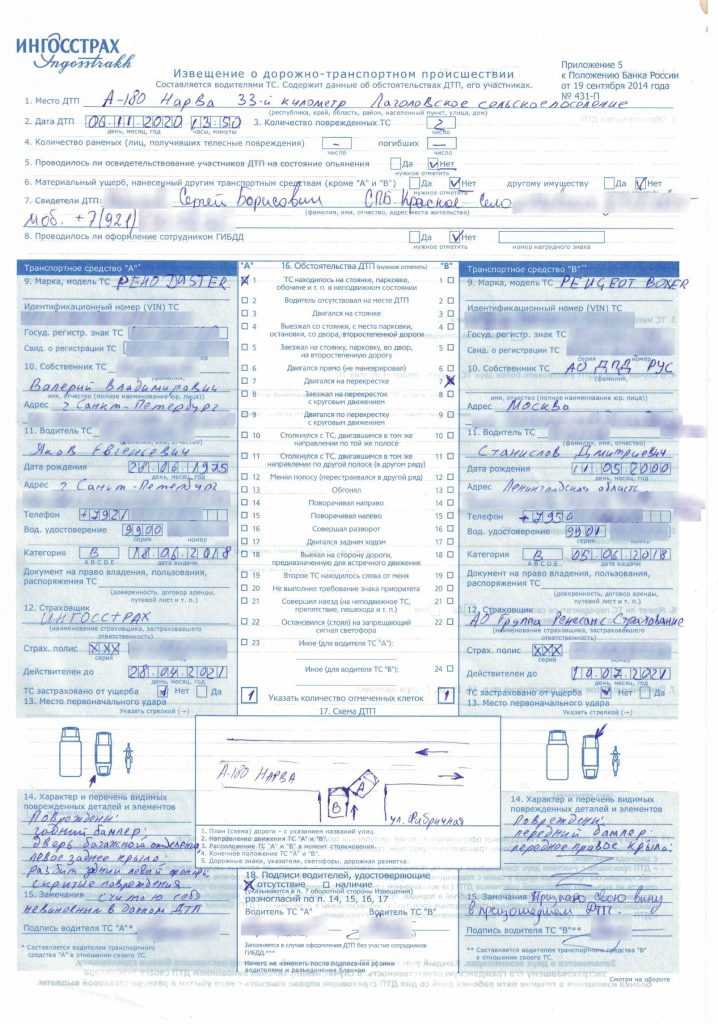 ИНГОССТРАХ
Ingosstrakh
Приложение 5
к Положению Банка России
от 19 сентября 2014 года
№ 431-П
Извещение о дорожно-транспортном происшествии
Составляется водителями ТС. Содержит данные об обстоятельствах ДТП, его участниках.
1. Место ДТП А-180 Нарва 33-й километр Лаголовское сельское поселение
(республика, край, область, район, населенный пункт, улица, дом)
2. Дата ДТП 06.11.2020 13 50 3. Количество поврежденных ТС 2
день, месяц, год часы, минуты число
4. Количество раненых (лиц, получивших телесные повреждения) – погибших –
число число
5. Проводилось ли освидетельствование участников ДТП на состояние опьянения Да Нет
нужное отметить
6. Материальный ущерб, нанесенный другим транспортным средствам (кроме "А" и "В") Да Нет другому имуществу Да Нет
нужное отметить нужное отметить
7. Свидетели ДТП: Сергей Борисович СПб Красное Село
(фамилия, имя, отчество, адрес места жительства)
моб. +7(921)
8. Проводилось ли оформление сотрудником ГИБДД Да Нет
нужное отметить номер нагрудного знака
Транспортное средство "А"
9. Марка, модель ТС РЕНО DASTER
Идентификационный номер (VIN) ТС
Госуд. регистр. знак ТС
Свид. о регистрации ТС
10. Собственник ТС
Валерий Владимирович
имя, отчество (полное наименование юр. лица))
Адрес г Санкт-Петербург
11. Водитель ТС
(фамилия, имя, отчество)
Яков Евгеньевич
Дата рождения 28 06 1975
день, месяц, год
Адрес г Санкт-Петербург
Телефон +7921
Вод. удостоверение 9900
серия номер
Категория В 18 06 2018
A B C D E дата выдачи
Документ на право владения, пользования, распоряжения ТС
(доверенность, договор аренды, путевой лист и т. п.)
12. Страховщик
ИНГОССТРАХ
(наименование страховщика, застраховавшего ответственность)
Страх. полис ХХХ
серия
Действителен до 28 04 2021
день, месяц, год
ТС застраховано от ущерба Нет Да
13. Место первоначального удара
Указать стрелкой (→)
14. Характер и перечень видимых поврежденных деталей и элементов
Повреждены:
задний бампер,
дверь багажного отделения
левое заднее крыло
разбит задний левый фонарь
скрытые повреждения
15. Замечания считаю себя
невиновным в данном ДТП
Подпись водителя ТС "А"*
* Составляется водителем транспортного средства "А" в отношении своего ТС.
"А" 16. Обстоятельства ДТП (нужное отметить) "В"
1 ТС находилось на стоянке, парковке, обочине и т. п. в неподвижном состоянии 1
2 Водитель отсутствовал на месте ДТП 2
3 Двигался на стоянке 3
4 Выезжал со стоянки, с места парковки, остановки, со двора, второстепенной дороги 4
5 Заезжал на стоянку, парковку, во двор, на второстепенную дорогу 5
6 Двигался прямо (не маневрировал) 6
7 Двигался на перекрестке 7
8 Заезжал на перекресток с круговым движением 8
9 Двигался по перекрестку с круговым движением 9
10 Столкнулся с ТС, двигавшимся в том же направлении по той же полосе 10
11 Столкнулся с ТС, двигавшимся в том же направлении по другой полосе (в другом ряду) 11
12 Менял полосу (перестраивался в другой ряд) 12
13 Обгонял 13
14 Поворачивал направо 14
15 Поворачивал налево 15
16 Совершал разворот 16
17 Двигался задним ходом 17
18 Выехал на сторону дороги, предназначенную для встречного движения 18
19 Второе ТС находилось слева от меня 19
20 Не выполнил требование знака приоритета 20
21 Совершил наезд (на неподвижное ТС, препятствие, пешехода и т. п.) 21
22 Остановился (стоял) на запрещающий сигнал светофора 22
23 Иное (для водителя ТС "А"):
Иное (для водителя ТС "В"): 24
1 Указать количество отмеченных клеток 1
17. Схема ДТП
А-180 НАРВА
А
В
ул. Фабричная
1. План (схема) дороги – с указанием названий улиц.
2. Направление движения ТС "А" и "В".
3. Расположение ТС "А" и "В" в момент столкновения.
4. Конечное положение ТС "А" и "В".
5. Дорожные знаки, указатели, светофоры, дорожная разметка.
18. Подписи водителей, удостоверяющие
отсутствие наличие
(указываются в п. 7 оборотной стороны Извещения)
разногласий по п. 14, 15, 16, 17
Водитель ТС "А" Водитель ТС "В"
Заполняется в случае оформления ДТП без участия сотрудников ГИБДД.***
Ничего не изменять после подписания обоими водителями и разъединения бланков
Транспортное средство "В"
9. Марка, модель ТС PEUGEOT BOXER
Идентификационный номер (VIN) ТС
Госуд. регистр. знак ТС
Свид. о регистрации ТС
серия номер
10. Собственник ТС АО ДПД РУС
(фамилия,
имя, отчество (полное наименование юр. лица))
Адрес Москва
11. Водитель ТС
(фамилия, имя, отчество)
Станислов Дмитриевич
Дата рождения 11 05 2000
день, месяц, год
Адрес Ленинградская область
Телефон +7950
Вод. удостоверение 9901
серия номер
Категория В 05 06 2018
A B C D E дата выдачи
Документ на право владения, пользования, распоряжения ТС
(доверенность, договор аренды, путевой лист и т. п.)
12. Страховщик
АО Группа Ренессанс Страхование
(наименование страховщика, застраховавшего ответственность)
Страх. полис ХХХ
серия
Действителен до
день, месяц, год
ТС застраховано от ущерба Нет Да
13. Место первоначального удара
Указать стрелкой (→)
14. Характер и перечень видимых поврежденных деталей и элементов
Повреждены:
передний бампер
переднее правое крыло
15. Замечания Признаю свою вину
в произошедшем ДТП.
Подпись водителя ТС "В"**
** Составляется водителем транспортного средства "В" в отношении своего ТС.
Смотри на обороте